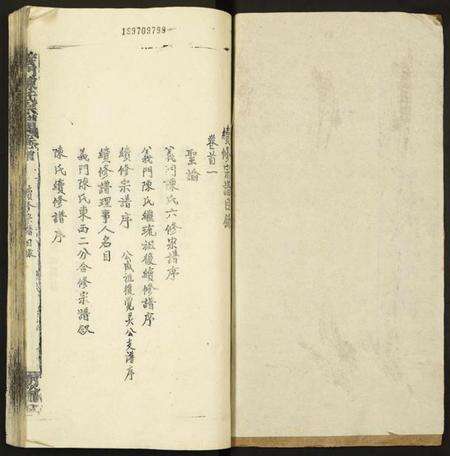 159709799
續修宗譜目錄
卷首一
聖諭
義門陳氏六修宗譜序
義門陳氏繼琉祖後續修譜序
續修宗譜序
公咸祖後覺昊公支譜序
續修譜理事人名目
義門陳氏東西二分合修宗譜敘
陳氏續修譜序